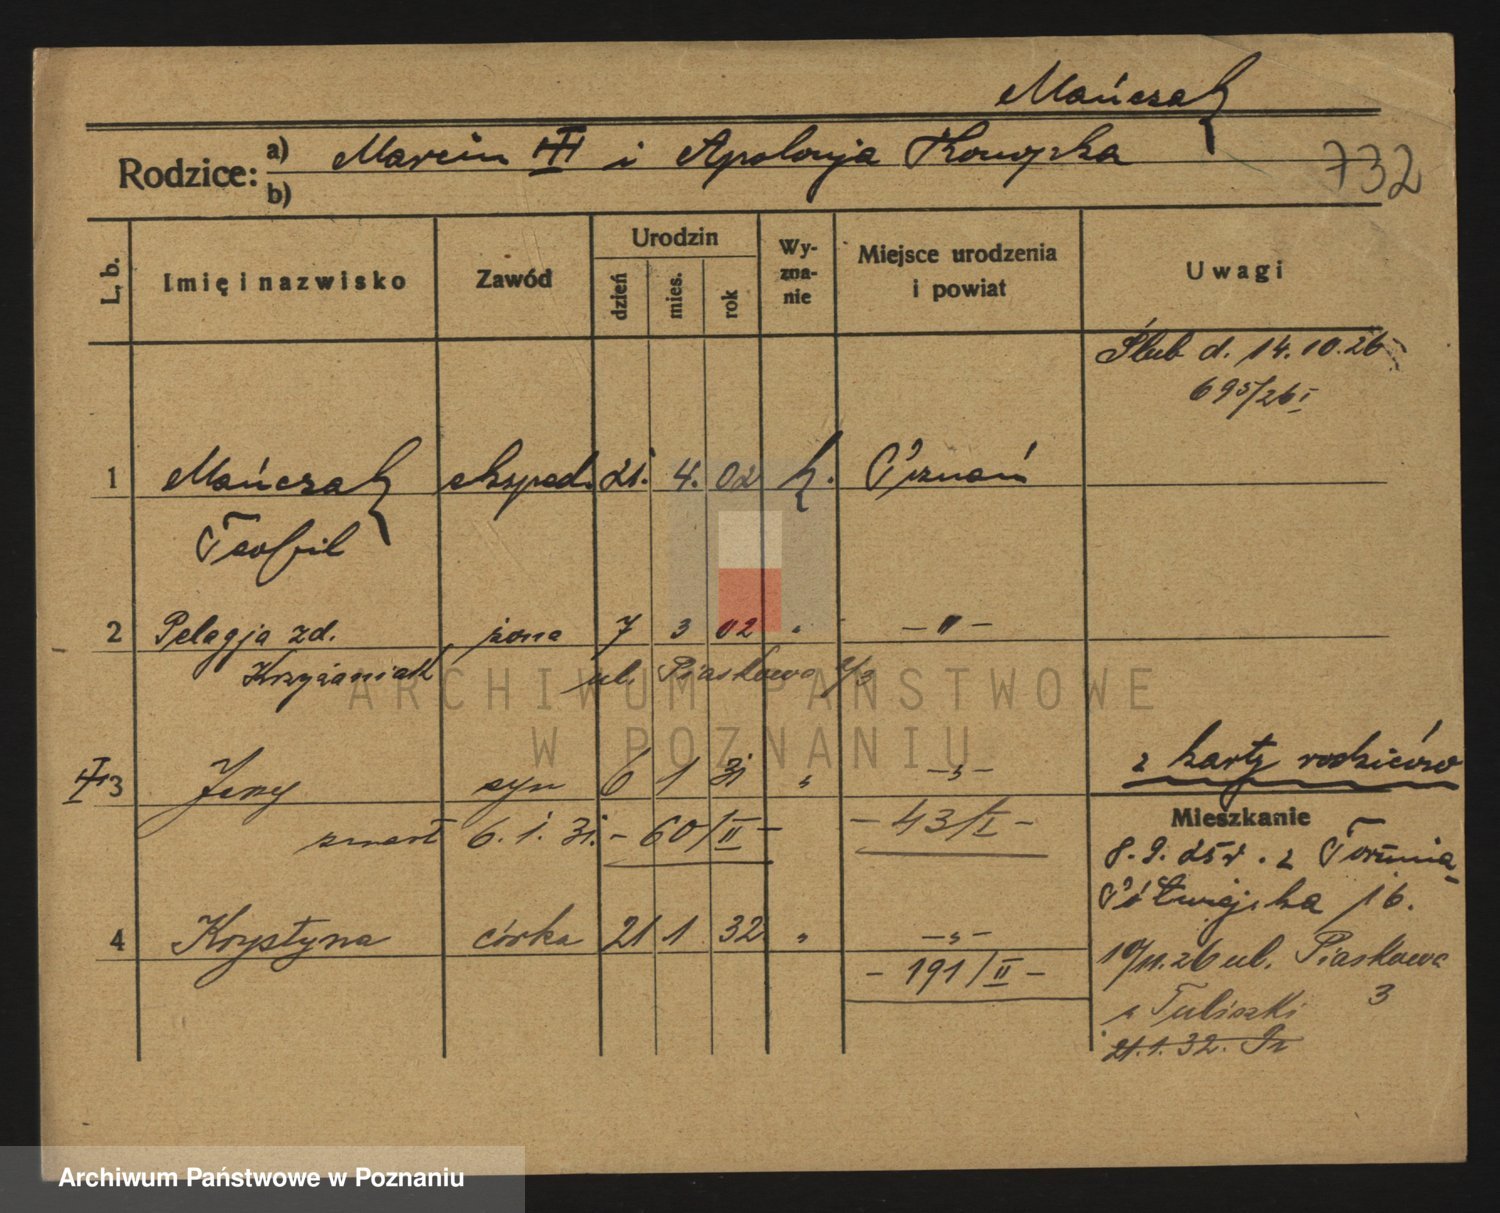 Mańczak
Rodzice: a) Marcin i Apolonja Konopka
b)
732
L. b. Imię i nazwisko Zawód Urodzin dzień mies. rok Wyznanie Miejsce urodzenia i powiat Uwagi
Ślub d. 14.10.26
695/26 I
1 Mańczak eksped. 21. 4. 02 k. Poznań
Teofil
2 Pelagja zd. żona 7 3 02 " — " —
Krzyżaniak ul. Piaskowa 2/3
ARCHIWUM PAŃSTWOWE
W POZNANIU
z karty rodziców
3 Jerzy syn 6 1 31 " — " —
Mieszkanie
zmarł 6. 1. 31. – 60/II – – 43/I –
8. 9. 25 r. z Torunia
Półwiejska 16.
4 Krystyna córka 21 1 32 " — " —
10/11.26 ul. Piaskowa
– 191/II –
3
u Tuliszki
21.1.32.
Archiwum Państwowe w Poznaniu